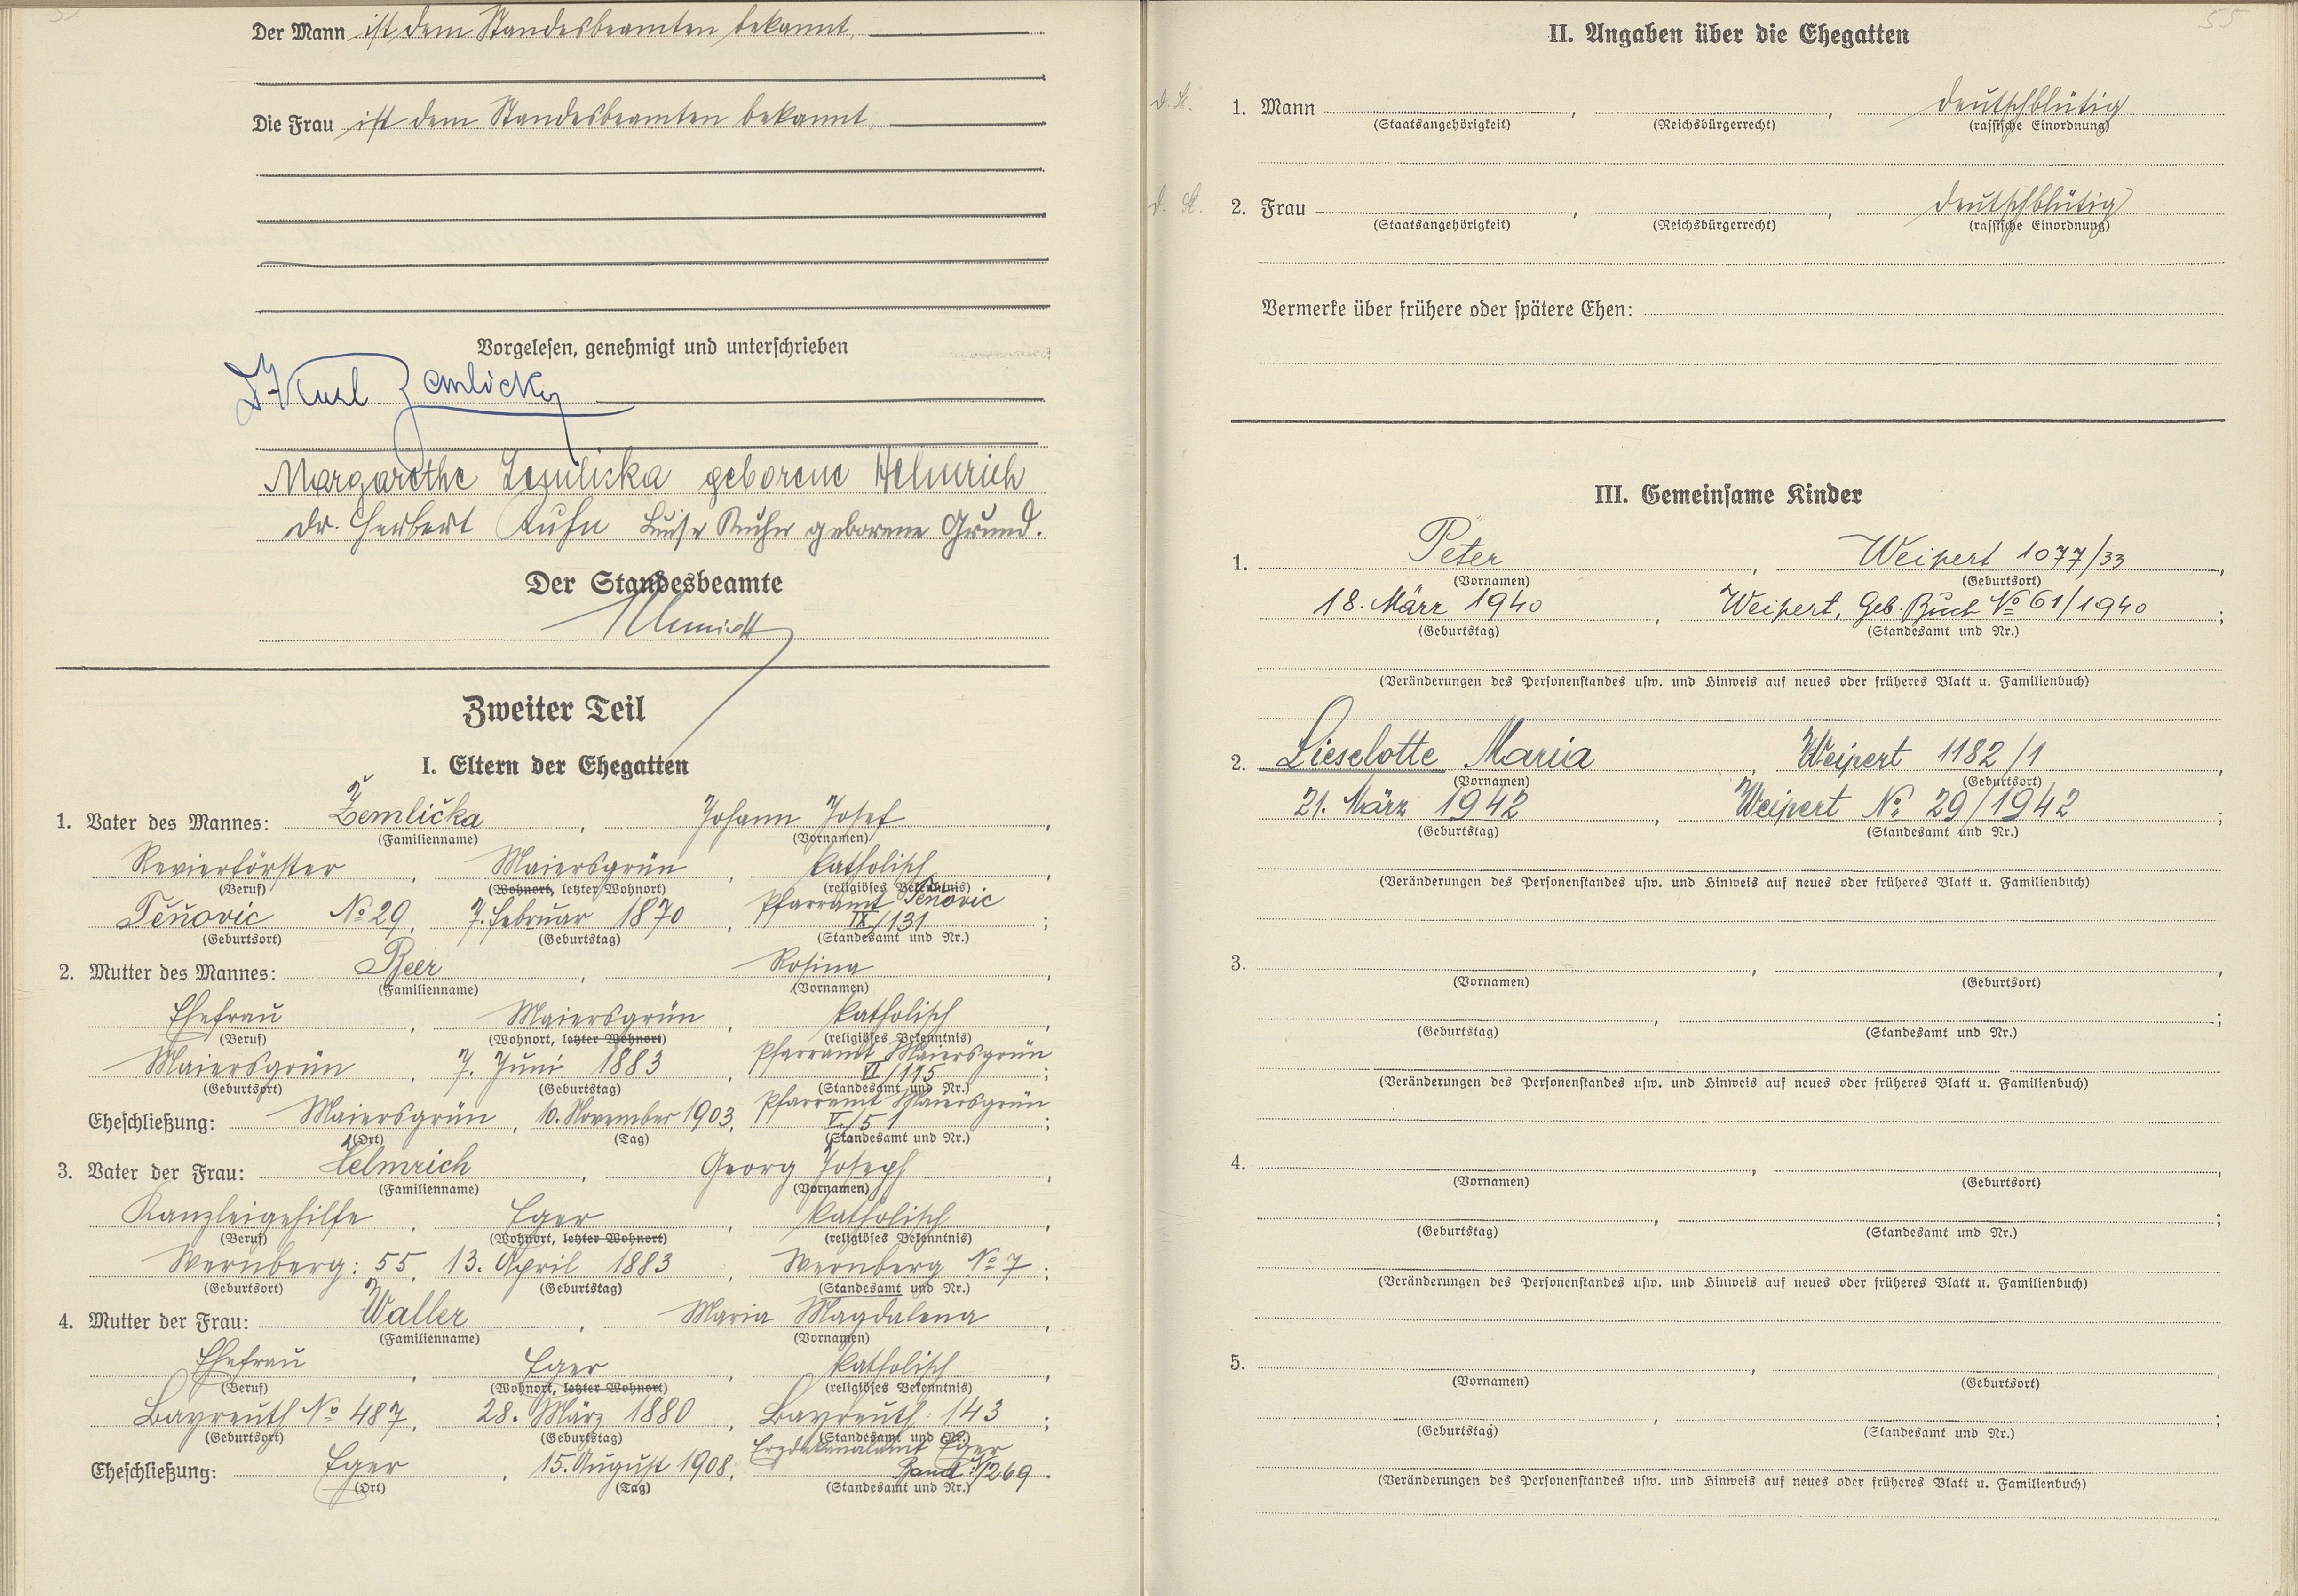 Der Mann ist dem Standesbeamten bekannt.
Die Frau ist dem Standesbeamten bekannt.
Vorgelesen, genehmigt und unterschrieben
Karl Zemlicka
Margarethe Zemlicka geborene Helmrich
Dr. Herbert Kuhn Luise Kuhn geborene Grund.
Der Standesbeamte
Zweiter Teil
I. Eltern der Ehegatten
1. Vater des Mannes: Žemlička, Johann Josef,
(Familienname) (Vornamen)
Revierförster, Maiersgrün, katholisch,
(Beruf) (Wohnort, letzter Wohnort) (religiöses Bekenntnis)
Pfarramt Těnovic
Těnovic No 29, 7. Februar 1870, IX/131;
(Geburtsort) (Geburtstag) (Standesamt und Nr.)
2. Mutter des Mannes: Beer, Rosina,
(Familienname) (Vornamen)
Ehefrau, Maiersgrün, katholisch,
(Beruf) (Wohnort, letzter Wohnort) (religiöses Bekenntnis)
Pfarramt Maiersgrün
Maiersgrün, 7. Juni 1883, VI/115;
(Geburtsort) (Geburtstag) (Standesamt und Nr.)
Pfarramt Maiersgrün
Eheschließung: Maiersgrün, 10. November 1903, V/5;
(Ort) (Tag) (Standesamt und Nr.)
3. Vater der Frau: Helmrich, Georg Joseph,
(Familienname) (Vornamen)
Kanzleigehilfe, Eger, katholisch,
(Beruf) (Wohnort, letzter Wohnort) (religiöses Bekenntnis)
Wernberg: 55, 13. April 1883, Wernberg No 7;
(Geburtsort) (Geburtstag) (Standesamt und Nr.)
4. Mutter der Frau: Waller, Maria Magdalena,
(Familienname) (Vornamen)
Ehefrau, Eger, katholisch,
(Beruf) (Wohnort, letzter Wohnort) (religiöses Bekenntnis)
Bayreuth No 487, 28. März 1880, Bayreuth: 143;
(Geburtsort) (Geburtstag) (Standesamt und Nr.)
Erzdekanalamt Eger
Eheschließung: Eger, 15. August 1908, Band /269.
(Ort) (Tag) (Standesamt und Nr.)
55
II. Angaben über die Ehegatten
d. St. 1. Mann , , deutschblütig
(Staatsangehörigkeit) (Reichsbürgerrecht) (rassische Einordnung)
d. St. 2. Frau , , deutschblütig
(Staatsangehörigkeit) (Reichsbürgerrecht) (rassische Einordnung)
Vermerke über frühere oder spätere Ehen:
III. Gemeinsame Kinder
1. Peter, Weipert 1077/33,
(Vornamen) (Geburtsort)
18. März 1940, Weipert, Geb. Buch No 61/1940;
(Geburtstag) (Standesamt und Nr.)
(Veränderungen des Personenstandes usw. und Hinweis auf neues oder früheres Blatt u. Familienbuch)
2. Lieselotte Maria, Weipert 1182/1,
(Vornamen) (Geburtsort)
21. März 1942, Weipert No 29/1942;
(Geburtstag) (Standesamt und Nr.)
(Veränderungen des Personenstandes usw. und Hinweis auf neues oder früheres Blatt u. Familienbuch)
3. , ,
(Vornamen) (Geburtsort)
, ;
(Geburtstag) (Standesamt und Nr.)
(Veränderungen des Personenstandes usw. und Hinweis auf neues oder früheres Blatt u. Familienbuch)
4. , ,
(Vornamen) (Geburtsort)
, ;
(Geburtstag) (Standesamt und Nr.)
(Veränderungen des Personenstandes usw. und Hinweis auf neues oder früheres Blatt u. Familienbuch)
5. , ,
(Vornamen) (Geburtsort)
, ;
(Geburtstag) (Standesamt und Nr.)
(Veränderungen des Personenstandes usw. und Hinweis auf neues oder früheres Blatt u. Familienbuch)